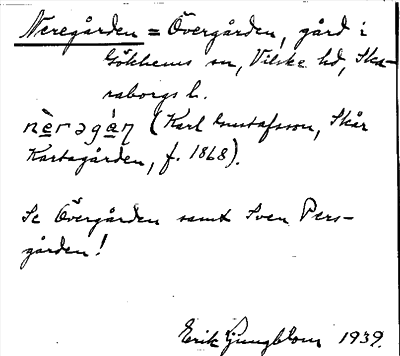 Neregården = Övergården, gård i
Gökhems sn, Vilske hd, Ska-
raborgs l.
nèrəgán (Karl Gustafsson, Skår
Karlsgården, f. 1868).
Se Övergården samt Sven Pers-
gården!
Erik Ljungblom 1939.